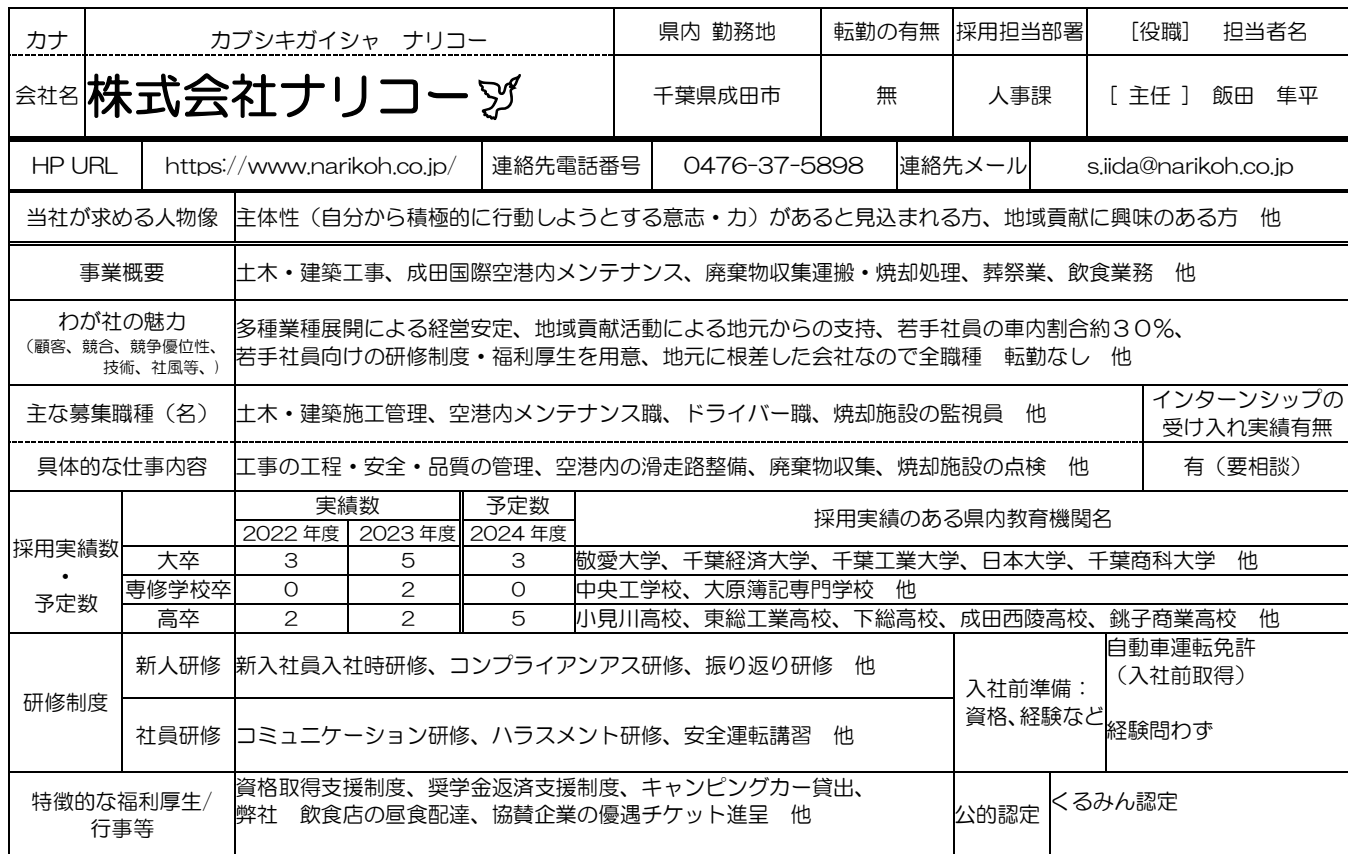 カナ カブシキガイシャ ナリコー 県内 勤務地 転勤の有無 採用担当部署 [役職] 担当者名
会社名 株式会社ナリコー 千葉県成田市 無 人事課 [ 主任 ] 飯田 隼平
HP URL https://www.narikoh.co.jp/ 連絡先電話番号 0476-37-5898 連絡先メール s.iida@narikoh.co.jp
当社が求める人物像 主体性（自分から積極的に行動しようとする意志・力）があると見込まれる方、地域貢献に興味のある方 他
事業概要 土木・建築工事、成田国際空港内メンテナンス、廃棄物収集運搬・焼却処理、葬祭業、飲食業務 他
わが社の魅力
（顧客、競合、競争優位性、
技術、社風等、）
多種業種展開による経営安定、地域貢献活動による地元からの支持、若手社員の車内割合約３０％、
若手社員向けの研修制度・福利厚生を用意、地元に根差した会社なので全職種 転勤なし 他
主な募集職種（名） 土木・建築施工管理、空港内メンテナンス職、ドライバー職、焼却施設の監視員 他
インターンシップの
受け入れ実績有無
具体的な仕事内容 工事の工程・安全・品質の管理、空港内の滑走路整備、廃棄物収集、焼却施設の点検 他 有（要相談）
採用実績数
・
予定数
実績数 予定数 採用実績のある県内教育機関名
2022 年度 2023 年度 2024 年度
大卒 3 5 3 敬愛大学、千葉経済大学、千葉工業大学、日本大学、千葉商科大学 他
専修学校卒 0 2 0 中央工学校、大原簿記専門学校 他
高卒 2 2 5 小見川高校、東総工業高校、下総高校、成田西陵高校、銚子商業高校 他
研修制度
新人研修 新入社員入社時研修、コンプライアンアス研修、振り返り研修 他
社員研修 コミュニケーション研修、ハラスメント研修、安全運転講習 他
入社前準備：
資格、経験など
自動車運転免許
（入社前取得）
経験問わず
特徴的な福利厚生/
行事等
資格取得支援制度、奨学金返済支援制度、キャンピングカー貸出、
弊社 飲食店の昼食配達、協賛企業の優遇チケット進呈 他
公的認定 くるみん認定